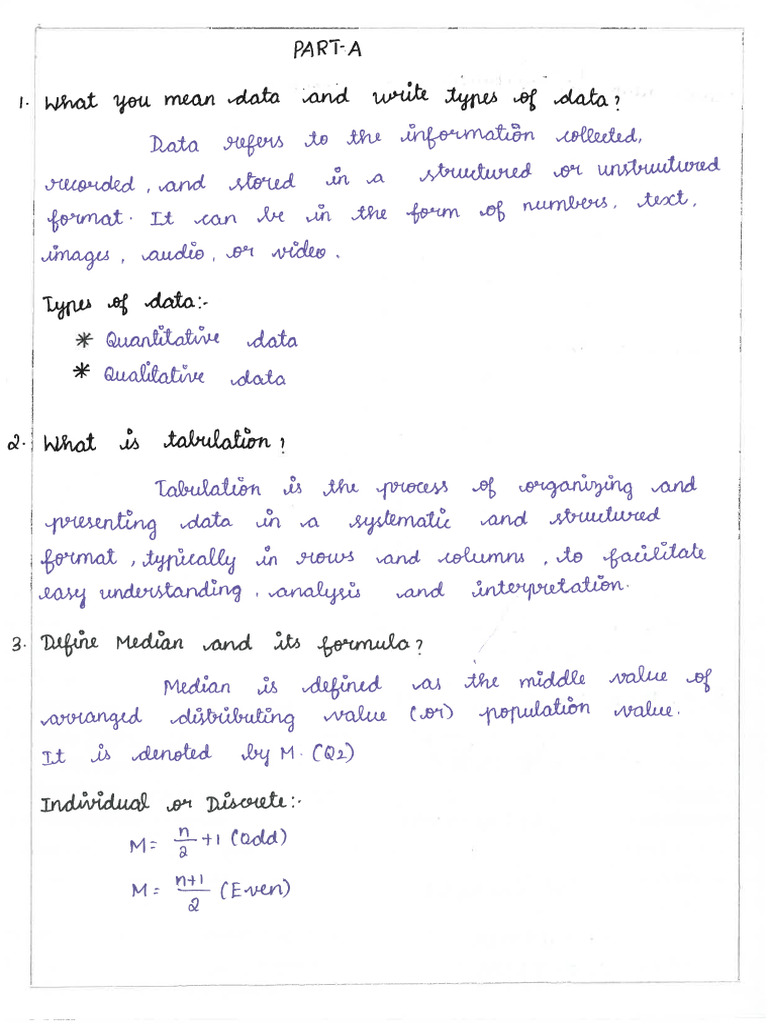 PART-A
1. What you mean data and write types of data?
Data refers to the information collected,
recorded, and stored in a structured or unstructured
format. It can be in the form of numbers, text,
images, audio, or video.
Types of data:-
* Quantitative data
* Qualitative data
2. What is tabulation?
Tabulation is the process of organizing and
presenting data in a systematic and structured
format, typically in rows and columns, to facilitate
easy understanding, analysis and interpretation.
3. Define Median and its formula?
Median is defined as the middle value of
arranged distributing value (or) population value.
It is denoted by M. (Q2)
Individual or Discrete:-
M = n/2 + 1 (Odd)
M = n+1/2 (Even)